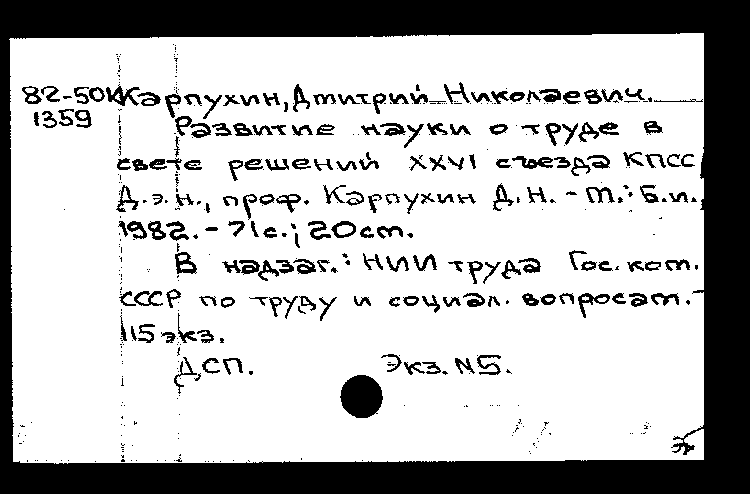 82-50К Карпухин, Дмитрий Николаевич.
1359
Развитие науки о труде в
свете решений XXVI съезда КПСС /
Д.э.н., проф. Карпухин Д.Н. - М.: Б.и.,
1982. - 71с.; 20см.
В надзаг.: НИИ труда Гос. ком.
СССР по труду и социал. вопросам. -
115 экз.
ДСП. Экз. N5.